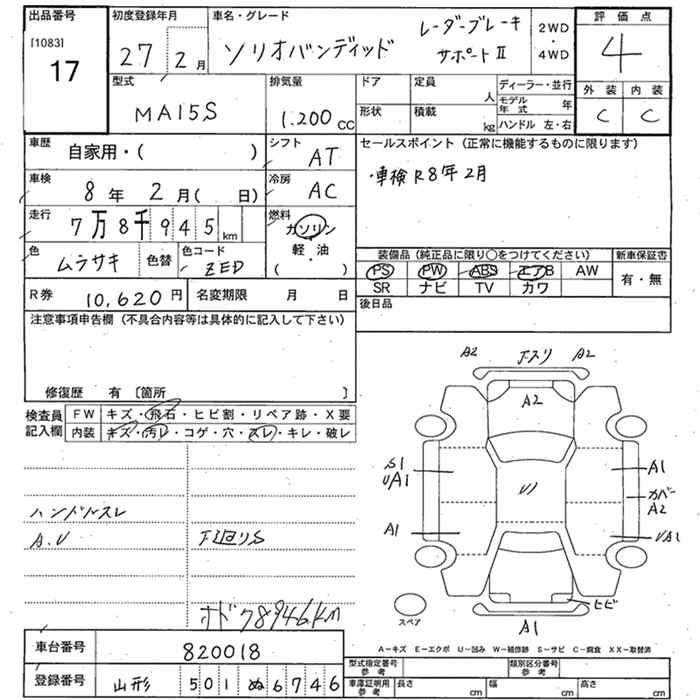 出品番号 初度登録年月 車名・グレード 評価点
[1083] 17
27 2月 ソリオバンディッド レーダーブレーキ サポートⅡ 2WD・4WD 4
外装 内装
C C
型式 排気量 ドア 定員 人 ディーラー・並行
MA15S 1.200cc 形状 積載 kg モデル年式 年
ハンドル 左・右
車歴 自家用・( ) シフト AT セールスポイント(正常に機能するものに限ります)
車検 8年 2月( 日) 冷房 AC ・車検R8年2月
走行 7万8千945km 燃料 ガソリン・軽・油 ( )
色 ムラサキ 色替 色コード ZED
装備品(純正品に限り〇をつけてください) 新車保証書
PS PW ABS エアB AW 有・無
SR ナビ TV カワ
R券 10,620円 名変期限 月 日 後日品
注意事項申告欄(不具合内容等は具体的に記入して下さい)
修復歴 有〔箇所 〕
検査員記入欄 FW キズ・飛石・ヒビ割・リペア跡・X要
内装 キズ・汚レ・コゲ・穴・スレ・キレ・破レ
ハンドルスレ
A.U 下廻りS
オド78946km
A2 下スリ A2
A2
S1 UA1 U1 A1
カバー A2
A1 UA1
ヒビ
スペア A1
A−キズ E−エクボ U−凹み W−補修跡 S−サビ C−腐食 XX−取替済
車台番号 820018
登録番号 山形 501 ぬ 6746
型式指定番号 参考 類別区分番号 参考
車庫証明用 参考 長さ cm 幅 cm 高さ cm